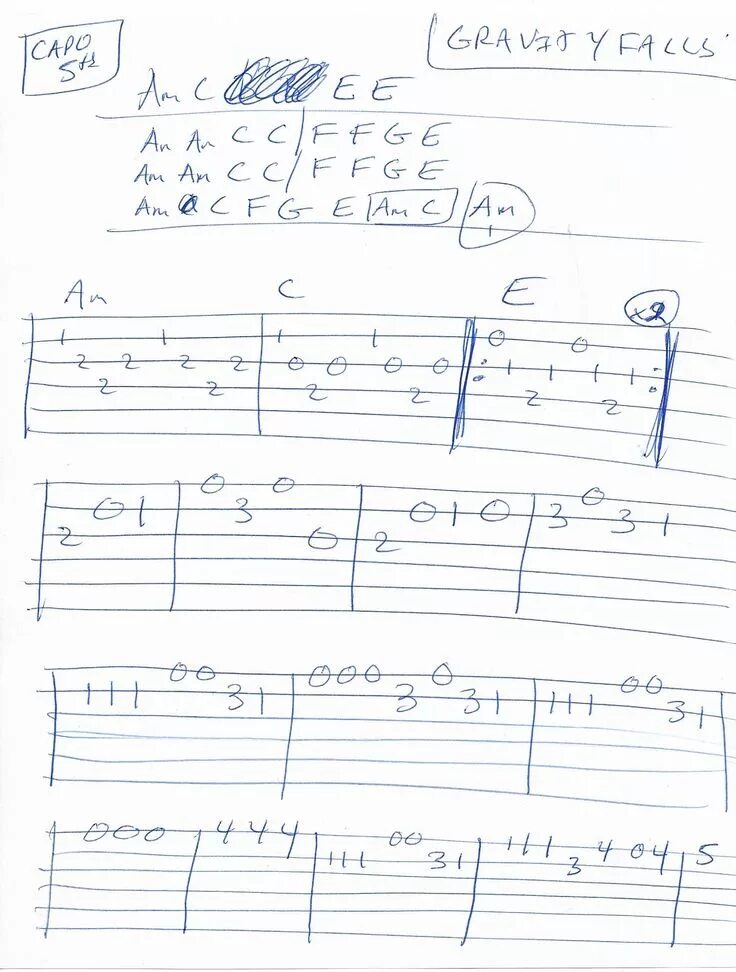 CAPO 5th
GRAVITY FALLS
Am C E E
Am Am C C / F F G E
Am Am C C / F F G E
Am C F G E Am C Am
Am C E x2
1 1 1 1 0 0
2 2 2 2 0 0 0 0 1 1 1 1
2 2 2 2 2 2
0 0 0
0 1 3 0 1 0 3 3 1
2 0 2
0 0 0 0 0 0 0 0
1 1 1 3 1 3 3 1 1 1 1 3 1
0 0 0 4 4 4 0 0 1 1 1 4 0 4 5
1 1 1 3 1 3